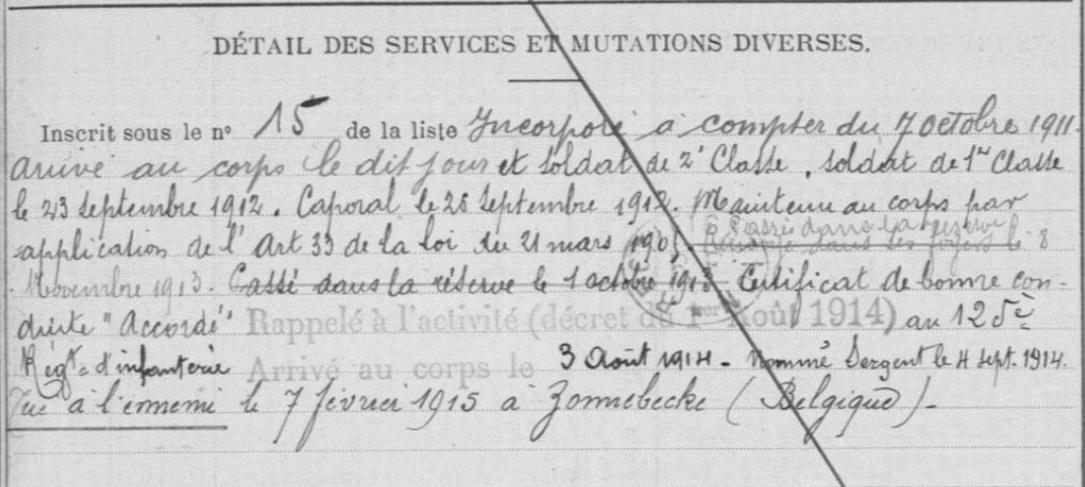 DÉTAIL DES SERVICES ET MUTATIONS DIVERSES.
Inscrit sous le n° 15 de la liste Incorporé à compter du 7 octobre 1911.
arrivé au corps le dit jour et soldat de 2e Classe, soldat de 1re Classe
le 23 septembre 1912. Caporal le 26 septembre 1912. Maintenu au corps par
Passé dans la réserve
application de l'Art 33 de la loi du 21 mars 1905, dans ses foyers le 8
Novembre 1913. Passé dans la réserve le 1 octobre 1913 Certificat de bonne con-
duite "Accordé" Rappelé à l'activité (décret du 1er Août 1914) au 125e
Régt d'infanterie Arrivé au corps le 3 Août 1914 - Nommé Sergent le 4 sept. 1914.
Tué à l'ennemi le 7 février 1915 à Zonnebecke (Belgique) -